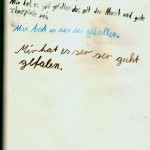 Mir hat es gut gefallen das mit der Musik und gute
Schauspieler
Mir hat es ser ser gefallen.
Mir hat es ser ser gucht
gefalen.